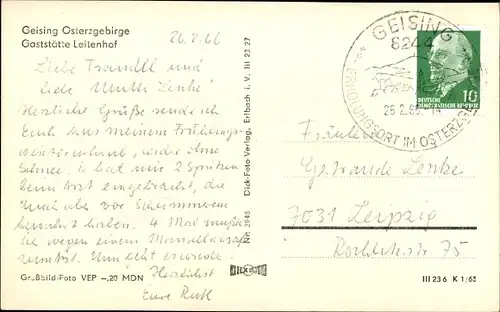 Geising Osterzgebirge
Gaststätte Leitenhof
26.2.66
Liebe Traudll und
liebe Mutti Lenke!
Herzliche Grüße sende ich
Euch aus meinem Frühlings-
winterurlaub, leider ohne
Schnee. Es hat mir 2 Spritzen
beim Arzt eingebracht, die
mich aber vor Schlimmerem
bewahrt haben. 4 Mal mußte
ich wegen einem
Uns geht es
Herzlichst
Eure Ruth
Gr. Bild-Foto VEP -,20 MDN
Nr. 3943 Dick-Foto-Verlag, Erlbach i. V. III 23 27
GEISING
8244
26.2.66
ERHOLUNGSORT IM OSTERZGEB
10
DEUTSCHE
DEMOKRATISCHE REPUBLIK
Fräulein
Gertraude Lenke
7031 Leipzig
75
III 23 6 K 1/65